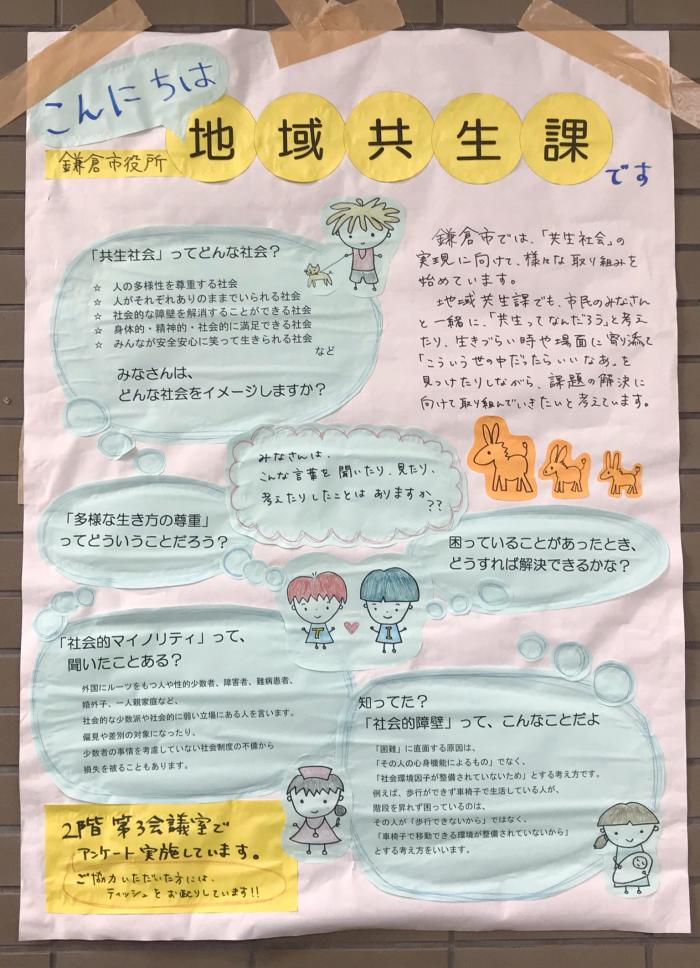 こんにちは
鎌倉市役所
地域共生課
です
「共生社会」ってどんな社会？
☆ 人の多様性を尊重する社会
☆ 人がそれぞれありのままでいられる社会
☆ 社会的な障壁を解消することができる社会
☆ 身体的・精神的・社会的に満足できる社会
☆ みんなが安全安心に笑って生きられる社会
など
みなさんは、
どんな社会をイメージしますか？
鎌倉市では、「共生社会」の
実現に向けて、様々な取り組みを
始めています。
地域共生課でも、市民のみなさん
と一緒に、「共生ってなんだろう」と考え
たり、生きづらい時や場面に寄り添って
「こういう世の中だったらいいなあ」を
見つけたりしながら、課題の解決に
向けて取り組んでいきたいと考えています。
みなさんは、
こんな言葉を聞いたり、見たり、
考えたりしたことはありますか
??
「多様な生き方の尊重」
ってどういうことだろう？
困っていることがあったとき、
どうすれば解決できるかな？
T
I
「社会的マイノリティ」って、
聞いたことある？
外国にルーツをもつ人や性的少数者、障害者、難病患者、
婚外子、一人親家庭など、
社会的な少数派や社会的に弱い立場にある人を言います。
偏見や差別の対象になったり、
少数者の事情を考慮していない社会制度の不備から
損失を被ることもあります。
知ってた？
「社会的障壁」って、こんなことだよ
「困難」に直面する原因は、
「その人の心身機能によるもの」でなく、
「社会環境因子が整備されていないため」とする考え方です。
例えば、歩行ができず車椅子で生活している人が、
階段を昇れず困っているのは、
その人が「歩行できないから」ではなく、
「車椅子で移動できる環境が整備されていないから」
とする考え方をいいます。
2階 第3会議室で
アンケート実施しています。
ご協力いただいた方には、
ティッシュをお配りしています!!